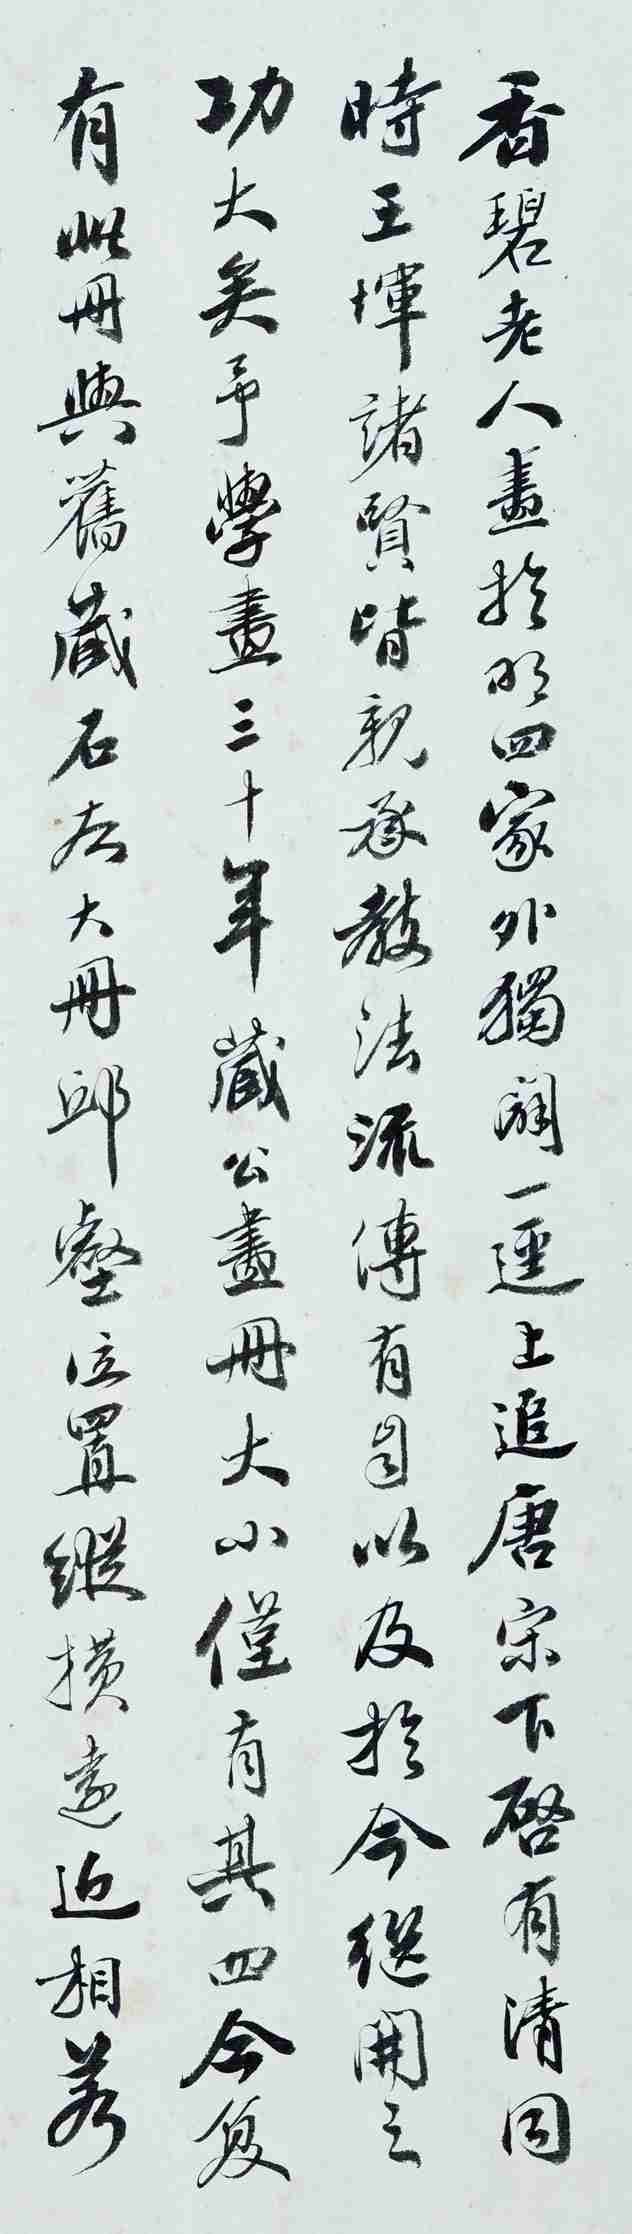 香碧老人畫於明四家外獨闢一逕上追唐宋下啓有清同
時王惲諸賢皆親承教法流傳有自以及於今繼開之
功大矣予學畫三十年藏公畫冊大小僅有其四今復
有此冊與舊藏石友大冊邱壑位置縱橫遠近相若